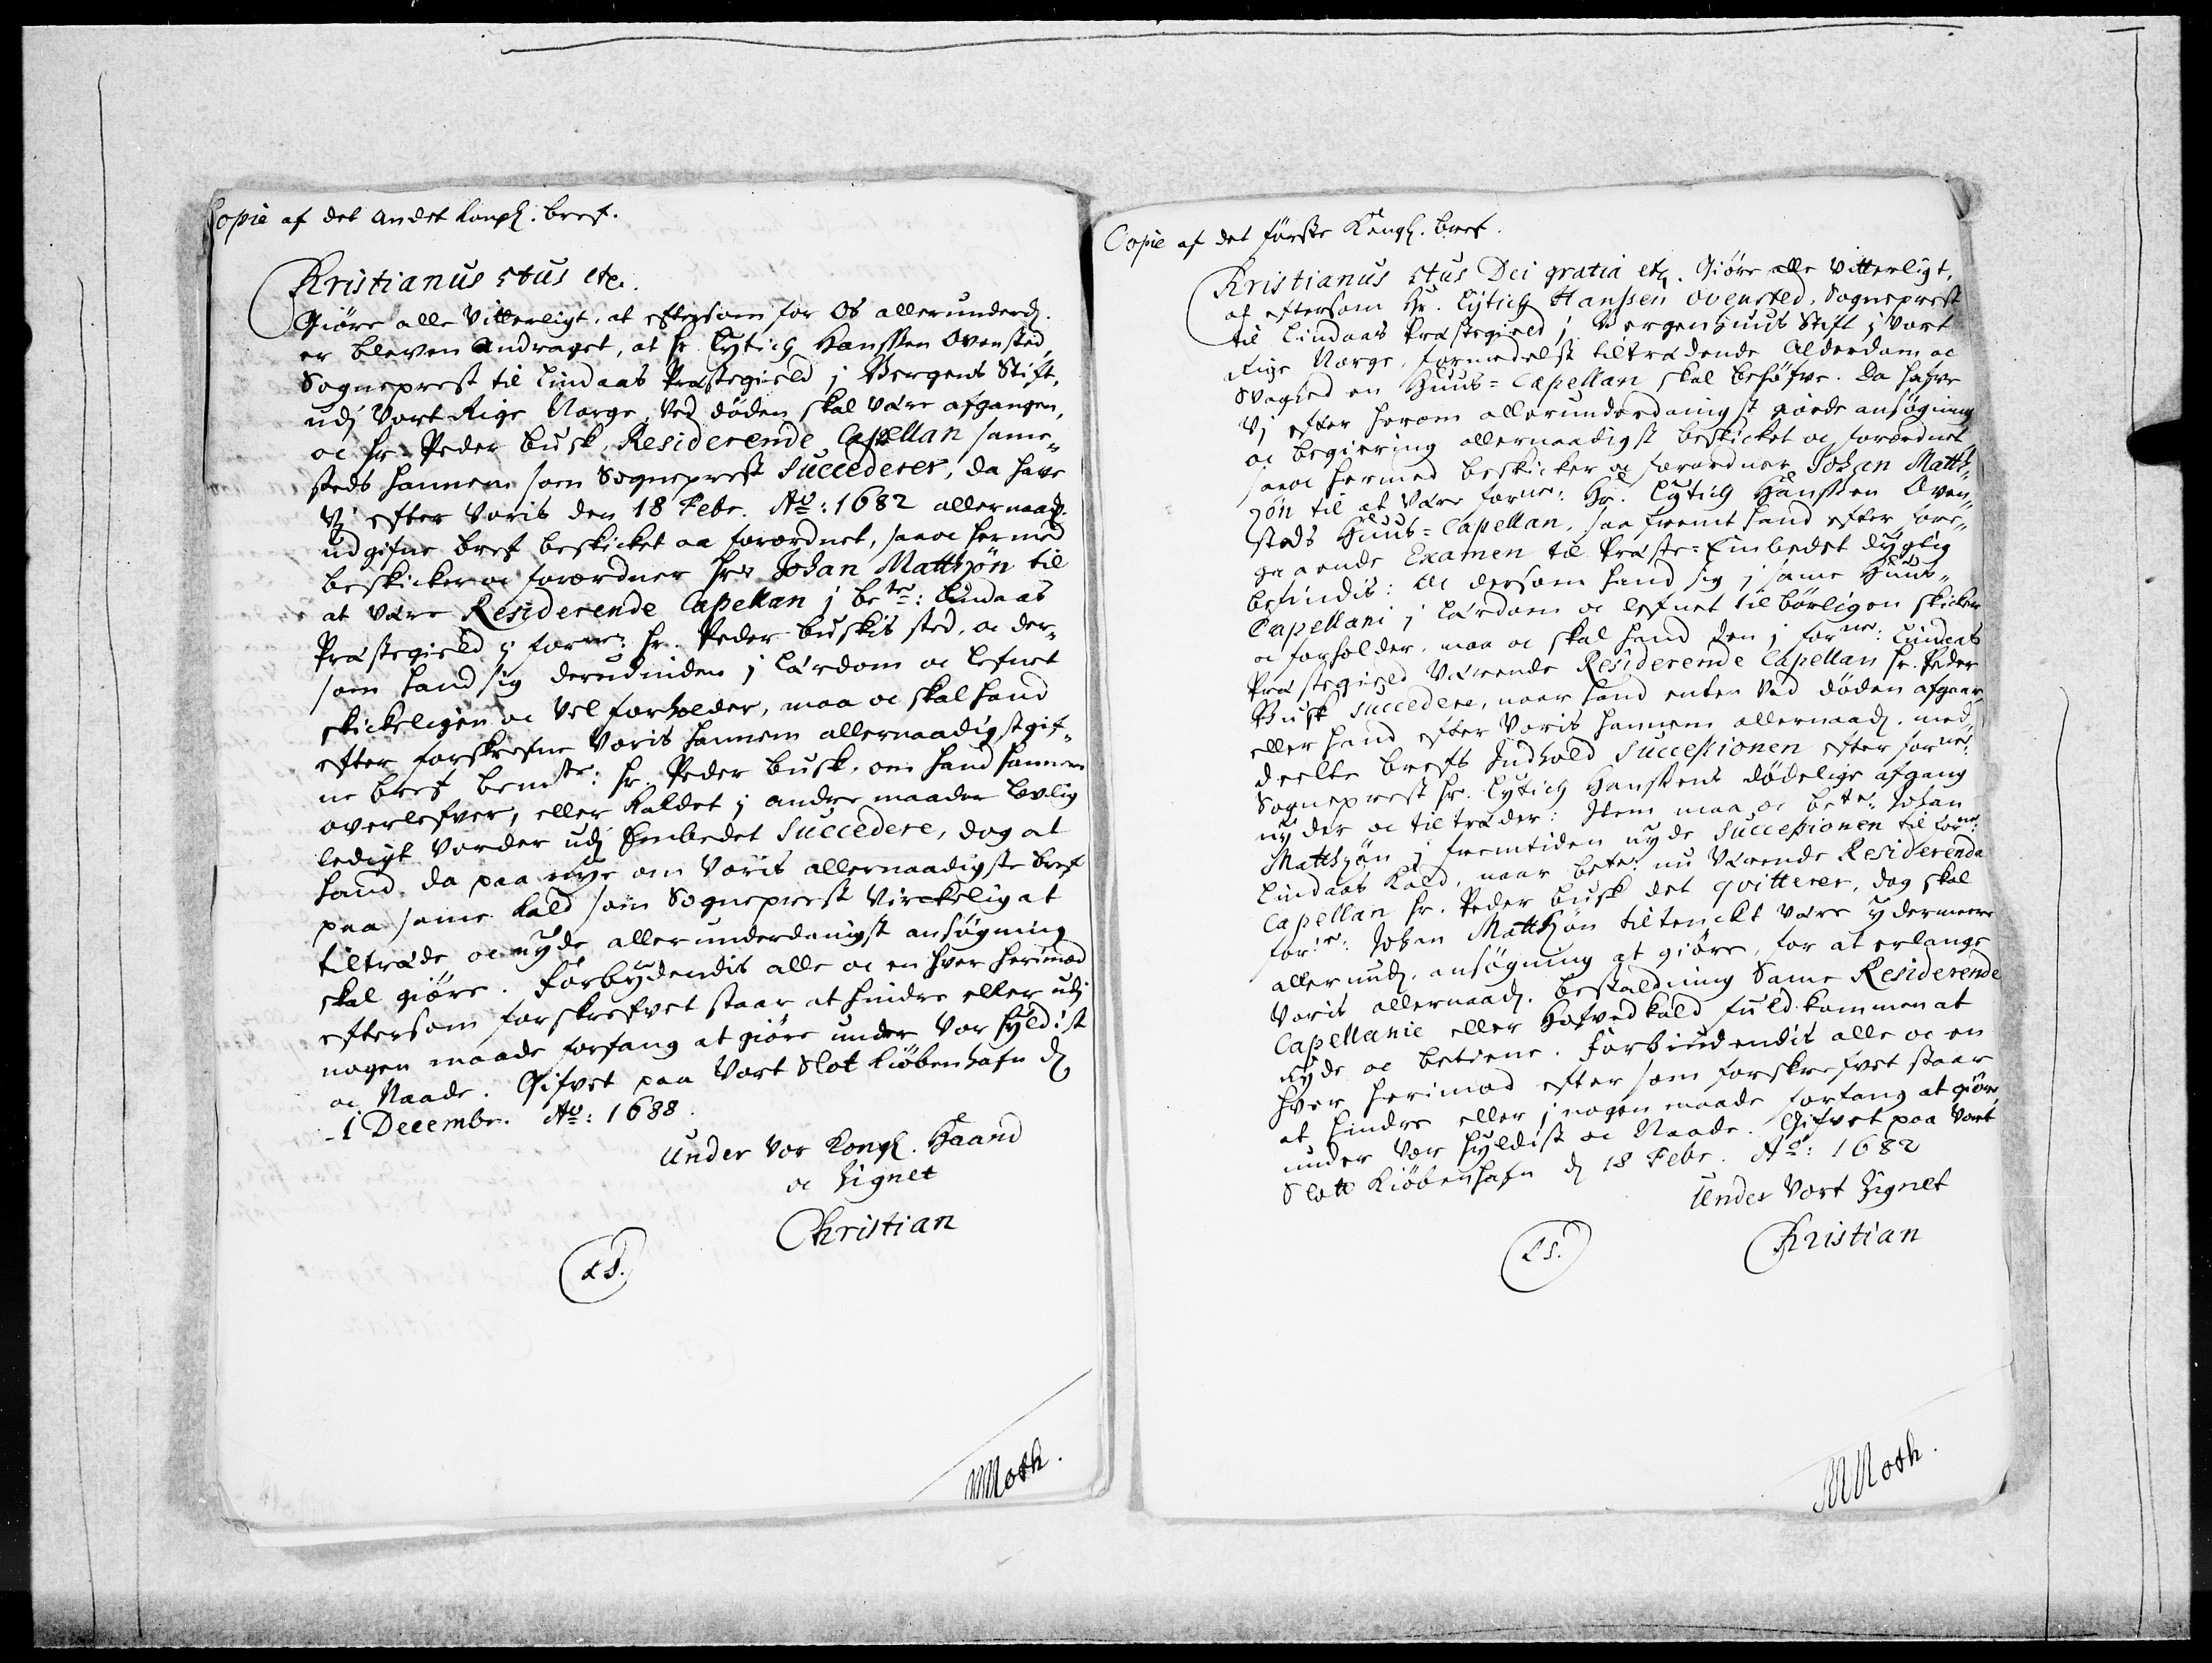 Copie af det andet Kongl. bref.
Christianus 5tus etc.
Giöre alle Vitterligt, at eftersom for Os allerunderd.
er bleven andraget, at hr. Lytich Hanssen Ovensted,
Sogneprest til Lindaas Præstegield j Bergens Stift,
udj Vort Rige Norge, Ved döden skal være afgangen,
oc hr. Peder Busk Residerende Capellan samme„
steds hannem som Sogneprest Succederer, da hafve
Vj efter Voris den 18 Febr. Ao: 1682 allernaad.
udgifne bref beskicket oc forordnet, saa oc hermed
beskicker oc forordner hr Johan Matthzön til
at være Residerende Capellan j bete: Lindaas
Præstegield j forne: hr. Peder Buskis sted, oc der„
som hand sig derudinden j Lærdom oc Lefnet
skickeligen oc Vel forholder, maa oc skal hand
efter forskrefne Voris hannem allernaadigst gif„
ne bref bemte: hr. Peder Busk, om hand hannem
overlefver, eller Kaldet j andre maader lovlig
ledigt Vorder udj Embedet Succedere, dog at
hand da paa nye om Voris allernaadigste bref
paa samme Kald som Sogneprest Virckelig at
tiltræde oc nyde allerunderdanigst ansögning
skal giöre. Forbydendis alle oc en hver herimod
eftersom forskrefvet staar at hindre eller udj
nogen maade forfang at giöre under Vor hyldist
oc Naade. Gifvet paa Vort Slot Kiöbenhafn d
1 Decembr. Ao: 1688.
Under Vor Kongl. Haand
oc Zignet
Christian
LS.
MMoth.
Copie af det förste Kongl. bref.
Christianus 5tus Dei gratia etc. Giöre alle Vitterligt,
at eftersom Hr. Lytich Hanssen Ovensted, Sogneprest
til Lindaas Præstegield j Bergenhuus Stift j Vort
Rige Norge, formedelst tiltrædende Alderdom oc
Svaghed en Huus=Capellan skal behöfve. Da hafve
Vj efter herom allerunderdanigst giorde ansögning
oc begiering allernaadigst beskicket oc forordnet
saa oc hermed beskicker oc forordner Johan Matth„
zön til at være forne: Hr. Lytich Hanssen Oven„
steds Huus=Capellan, saa fremt hand efter fore„
gaaende Examen til Præste=Embedet dygtig
befindis: Oc dersom hand sig j samme Huus„
Capellani j Lærdom oc lefnet tilbörligen skicker
oc forholder, maa oc skal hand den j forne: Lindaas
Præstegield Værende Residerende Capellan hr. Peder
Busk succedere, naar hand enten Ved döden afgaar,
eller hand efter Voris hannem allernaad. med„
deelte brefs Indhold Successionen efter forne:
Sogneprest hr. Lytich Hanssens dödelige afgang
nyder oc tiltræder: Item maa oc bete: Johan
Matthzön j fremtiden nyde Successionen til forne:
Lindaas Kald, naar bete: nu Værende Residerende
Capellan hr. Peder Busk det qvitterer, dog skal
forne: Johan Matthzön tiltenckt være ydermeere
allerund. ansögning at giöre, for at erlange
Voris allernaad. bestaldning samme Residerende
Capellanie eller Hofved kald fuldkommen at
nyde oc betiene. Forbiudendis alle oc en
hver herimod efter som forskrefvet staar
at hindre eller j nogen maade forfang at giöre,
under Vor hyldist oc Naade. Gifvet paa Vort
Slott Kiöbenhafn d 18 Febr. Ao: 1682
Under Vort Zignet
Christian
LS.
MMoth.